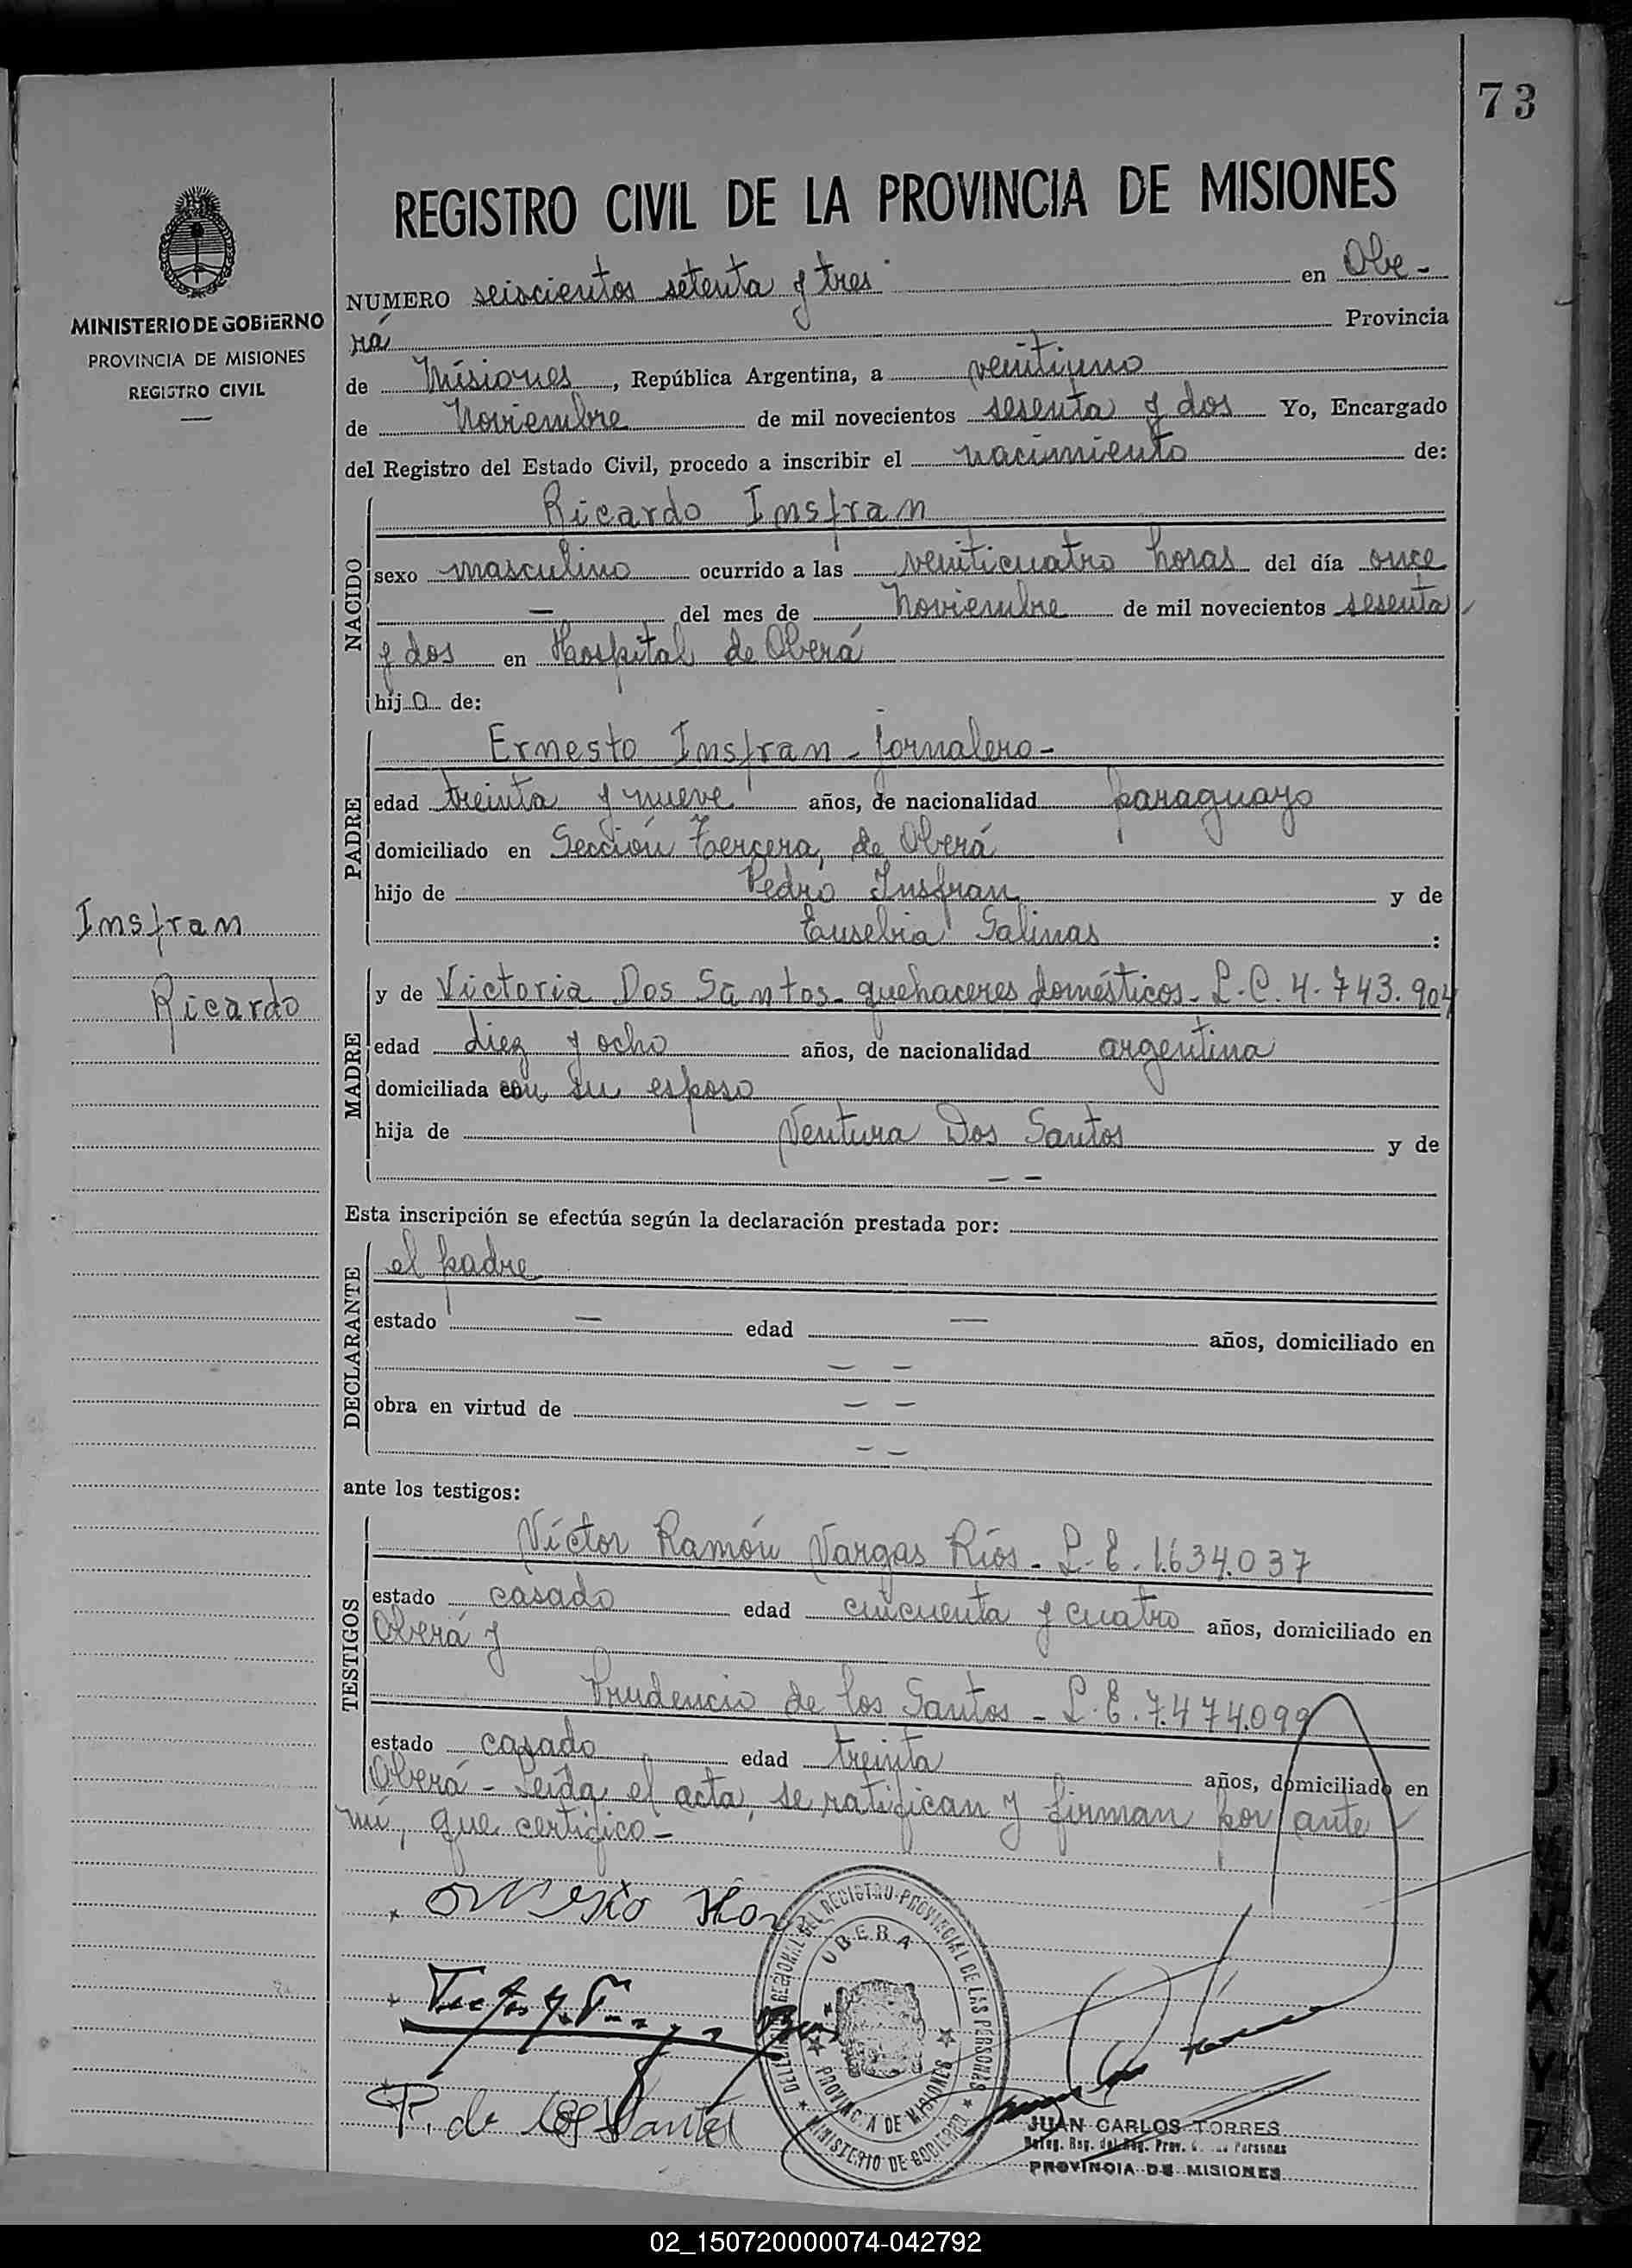 73
REGISTRO CIVIL DE LA PROVINCIA DE MISIONES
MINISTERIO DE GOBIERNO
PROVINCIA DE MISIONES
REGISTRO CIVIL
NUMERO seiscientos setenta y tres en Obe-
rá Provincia
de Misiones, República Argentina, a veintiuno
de Noviembre de mil novecientos sesenta y dos Yo, Encargado
del Registro del Estado Civil, procedo a inscribir el nacimiento de:
NACIDO
Ricardo Insfran
sexo masculino ocurrido a las veinticuatro horas del día once
— del mes de Noviembre de mil novecientos sesenta
y dos en Hospital de Oberá
hijo de:
PADRE
Ernesto Insfran - jornalero -
edad treinta y nueve años, de nacionalidad paraguayo
domiciliado en Sección Tercera, de Oberá
hijo de Pedro Insfran y de
Eusebia Salinas :
Insfran
Ricardo
MADRE
y de Victoria Dos Santos - quehaceres domésticos - L.C. 4.743.904
edad diez y ocho años, de nacionalidad argentina
domiciliada con su esposo
hija de Ventura Dos Santos y de
— —
Esta inscripción se efectúa según la declaración prestada por:
DECLARANTE
el padre
estado — edad — años, domiciliado en
— —
obra en virtud de — —
— —
ante los testigos:
TESTIGOS
Víctor Ramón Vargas Ríos - L.E. 1.634.037
estado casado edad cincuenta y cuatro años, domiciliado en
Oberá y
Prudencio de los Santos - L.E. 7.474.099
estado casado edad treinta años, domiciliado en
Oberá - Leída el acta, se ratifican y firman por ante
mí, que certifico -
P. de los Santos
DEL REGISTRO PROVINCIAL DE LAS PERSONAS
OBERA
PROVINCIA DE MISIONES
MINISTERIO DE GOBIERNO
JUAN CARLOS TORRES
PROVINCIA DE MISIONES
02_150720000074-042792